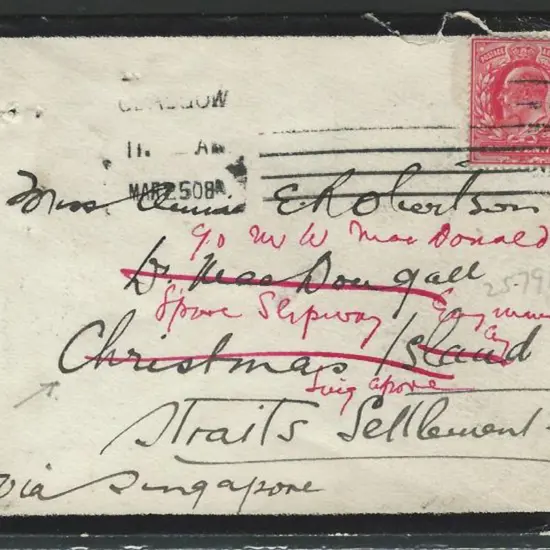 POSTAGE
GLASGOW
11. AM
MAR 25 08
Miss Emma E. Robertson
c/o Mr W MacDonald
Dr. MacDougall
2579
S'pore Slipway Engineering Coy
Christmas Island
Singapore
Straits Settlement
via Singapore